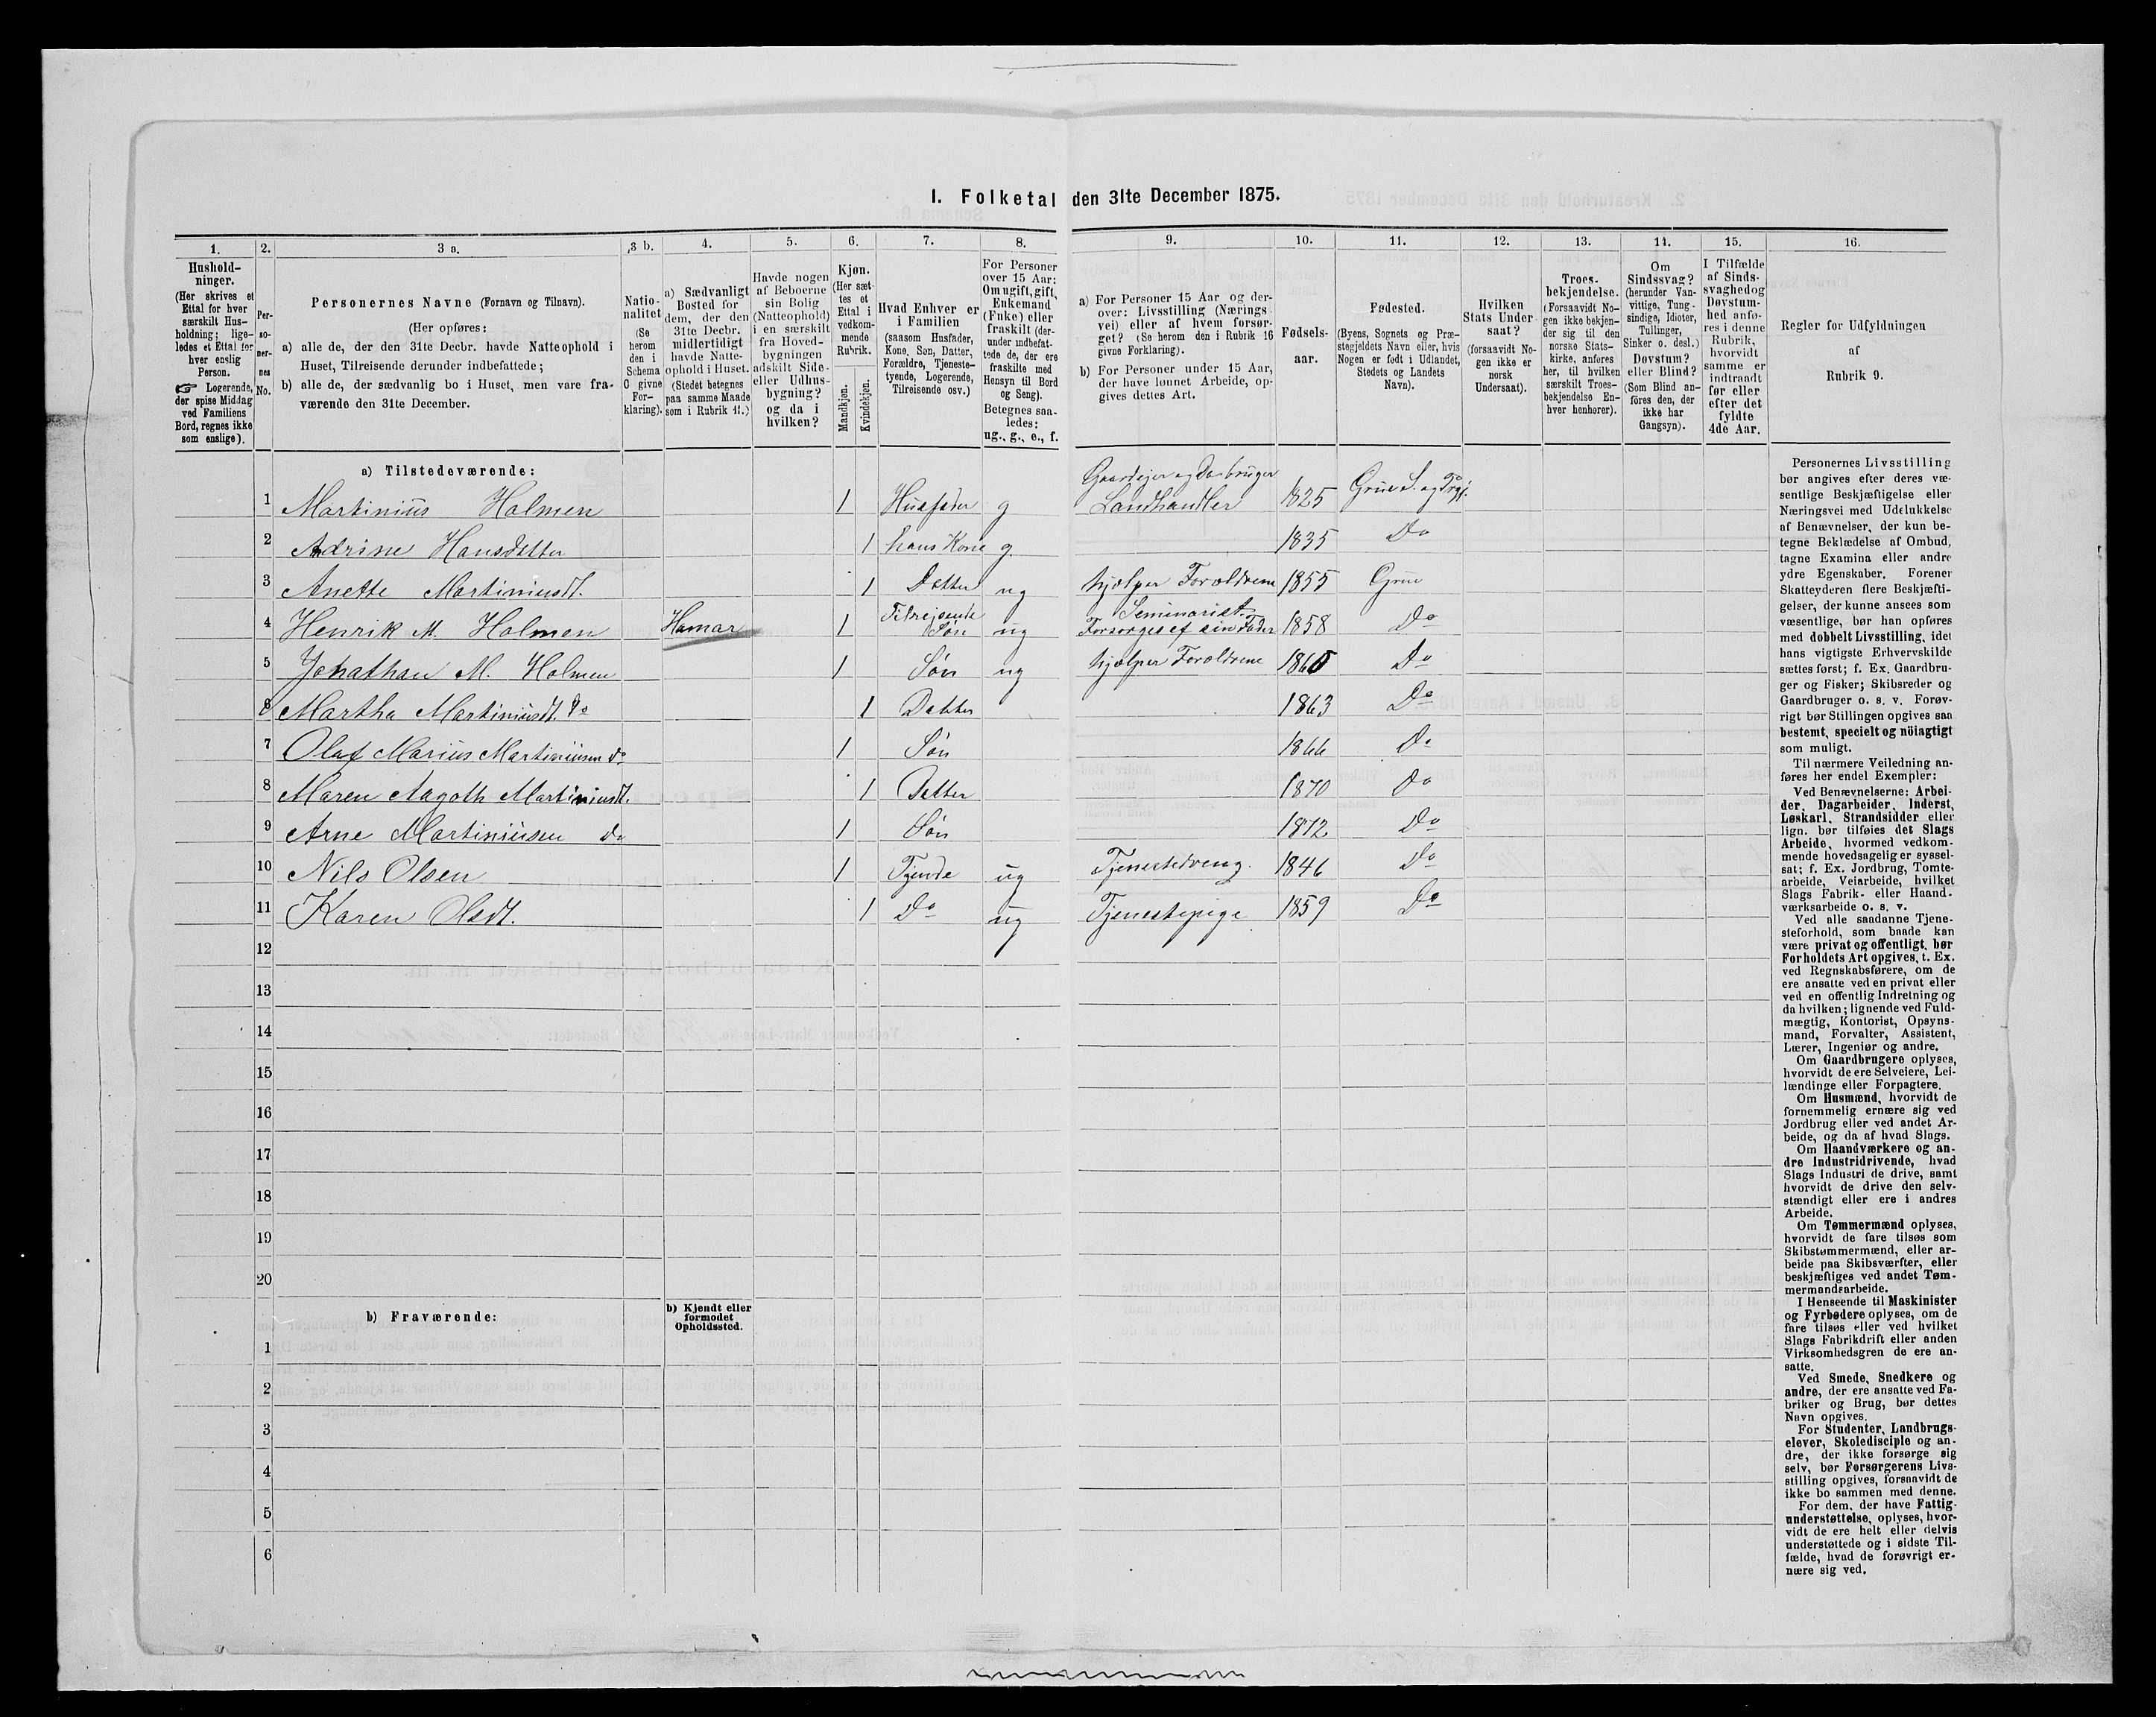 I. Folketal den 31te December 1875.
1.
Hushold-
ninger.
(Her skrives et
Ettal for hver
særskilt Hus-
holdning; lige-
ledes et Ettal for
hver enslig
Person.
☞ Logerende,
der spise Middag
ved Familiens
Bord, regnes ikke
som enslige).
2.
Per-
so-
ner-
nes
No.
3 a.
Personernes Navne (Fornavn og Tilnavn).
(Her opføres:
a) alle de, der den 31te Decbr. havde Natteophold i
Huset, Tilreisende derunder indbefattede;
b) alle de, der sædvanlig bo i Huset, men vare fra-
værende den 31te December.
3 b.
Natio-
nalitet
(Se
herom
den i
Schema
C givne
For-
klaring).
4.
a) Sædvanligt
Bosted for
dem, der den
31te Decbr.
midlertidigt
havde Natte-
ophold i Huset.
(Stedet betegnes
paa samme Maade
som i Rubrik 11.)
5.
Havde nogen
af Beboerne
sin Bolig
(Natteophold)
i en særskilt
fra Hoved-
bygningen
adskilt Side-
eller Udhus-
bygning?
og da i
hvilken?
6.
Kjøn.
(Her sæt-
tes et
Ettal i
vedkom-
mende
Rubrik.
Mandkjøn.
Kvindekjøn.
7.
Hvad Enhver er
i Familien
(saasom Husfader,
Kone, Søn, Datter,
Forældre, Tjeneste-
tyende, Logerende,
Tilreisende osv.)
8.
For Personer
over 15 Aar:
Om ugift, gift,
Enkemand
(Enke) eller
fraskilt (der-
under indbefat-
tede de, der ere
fraskilte med
Hensyn til Bord
og Seng).
Betegnes saa-
ledes:
ug., g., e., f.
9.
a) For Personer 15 Aar og der-
over: Livsstilling (Nærings-
vei) eller af hvem forsør-
get? (Se herom den i Rubrik 16
givne Forklaring).
b) For Personer under 15 Aar,
der have lønnet Arbeide, op-
gives dettes Art.
10.
Fødsels-
aar.
11.
Fødested.
(Byens, Sognets og Præ-
stegjeldets Navn eller, hvis
Nogen er født i Udlandet,
Stedets og Landets
Navn).
12.
Hvilken
Stats Under-
saat?
(forsaavidt No-
gen ikke er
norsk
Undersaat).
13.
Troes-
bekjendelse.
(Forsaavidt No-
gen ikke bekjen-
der sig til den
norske Stats-
kirke, anføres
her, til hvilken
særskilt Troes-
bekjendelse En-
hver henhører).
14.
Om
Sindssvag?
(herunder Van-
vittige, Tung-
sindige, Idioter,
Tullinger,
Sinker o. desl.)
Døvstum?
eller Blind?
(Som Blind an-
föres den, der
ikke har
Gangsyn).
15.
I Tilfælde
af Sinds-
svaghed og
Døvstum-
hed anfø-
res i denne
Rubrik,
hvorvidt
samme er
indtraadt
før eller
efter det
fyldte
4de Aar.
16.
Regler for Udfyldningen
af
Rubrik 9.
a) Tilstedeværende:
1 Martinius Holmen 1 Husfader g Gaardejer og Landhandler 1825 Grue S. og Prgj.
2 Andrine Hansdatter 1 hans Kone g. 1835 Do
3 Anette Martiniusdt. 1 Datter ug hjælper Forældrene 1855 Grue
4 Henrik M. Holmen Hamar 1 Tilrejsende Søn ug Seminarist. Forsørges af sin Fader 1858 Do
5 Jonathan M. Holmen 1 Søn ug hjælper Forældrene 1860 Do
6 Martha Martiniusdt. Do 1 Datter 1863 Do
7 Olaf Marius Martiniusen Do 1 Søn 1866 Do
8 Maren Aagoth Martiniusdt. 1 Datter 1870 Do
9 Arne Martiniusen Do 1 Søn 1872. Do
10 Nils Olsen 1 Tjende ug Tjenestedreng. 1846 Do
11 Karen Olsdt. 1 Do ug Tjenestepige 1859 Do
12
13
14
15
16
17
18
19
20
b) Fraværende:
b) Kjendt eller
formodet
Opholdssted.
1
2
3
4
5
6
Personernes Livsstilling
bør angives efter deres væ-
sentlige Beskjæftigelse eller
Næringsvei med Udelukkelse
af Benævnelser, der kun be-
tegne Beklædelse af Ombud,
tagne Examina eller andre
ydre Egenskaber. Forener
Skatteyderen flere Beskjæfti-
gelser, der kunne ansees som
væsentlige, bør han opføres
med dobbelt Livsstilling, idet
hans vigtigste Erhvervskilde
sættes først; f. Ex. Gaardbru-
ger og Fisker; Skibsreder og
Gaardbruger o. s. v. Forøv-
rigt bør Stillingen opgives saa
bestemt, specielt og nöiagtigt
som muligt.
Til nærmere Veiledning an-
føres her endel Exempler:
Ved Benævnelserne: Arbei-
der, Dagarbeider, Inderst,
Løskarl, Strandsidder eller
lign. bør tilføies det Slags
Arbeide, hvormed vedkom-
mende hovedsagelig er syssel-
sat; f. Ex. Jordbrug, Tomte-
arbeide, Veiarbeide, hvilket
Slags Fabrik- eller Haand-
værksarbeide o. s. v.
Ved alle saadanne Tjene-
steforhold, som baade kan
være privat og offentligt, bør
Forholdets Art opgives, t. Ex.
ved Regnskabsførere, om de
ere ansatte ved en privat eller
ved en offentlig Indretning og
da hvilken; lignende ved Fuld-
mægtig, Kontorist, Opsyns-
mand, Forvalter, Assistent,
Lærer, Ingeniør og andre.
Om Gaardbrugere oplyses,
hvorvidt de ere Selveiere, Lei-
lændinge eller Forpagtere.
Om Husmænd, hvorvidt de
fornemmelig ernære sig ved
Jordbrug eller ved andet Ar-
beide, og da af hvad Slags.
Om Haandværkere og an-
dre Industridrivende, hvad
Slags Industri de drive, samt
hvorvidt de drive den selv-
stændigt eller ere i andres
Arbeide.
Om Tømmermænd oplyses,
hvorvidt de fare tilsøs som
Skibstømmermænd, eller ar-
beide paa Skibsværfter, eller
beskjæftiges ved andet Tøm-
mermandsarbeide.
I Henseende til Maskinister
og Fyrbødere oplyses, om de
fare tilsøs eller ved hvilket
Slags Fabrikdrift eller anden
Virksomhedsgren de ere an-
satte.
Ved Smede, Snedkere og
andre, der ere ansatte ved Fa-
briker og Brug, bør dettes
Navn opgives.
For Studenter, Landbrugs-
elever, Skoledisciple og an-
dre, der ikke forsørge sig
selv, bør Forsørgerens Livs-
stilling opgives, forsaavidt de
ikke bo sammen med denne.
For dem, der have Fattig-
understøttelse, oplyses, hvor-
vidt de ere helt eller delvis
understøttede og i sidste Til-
fælde, hvad de forøvrigt er-
nære sig ved.